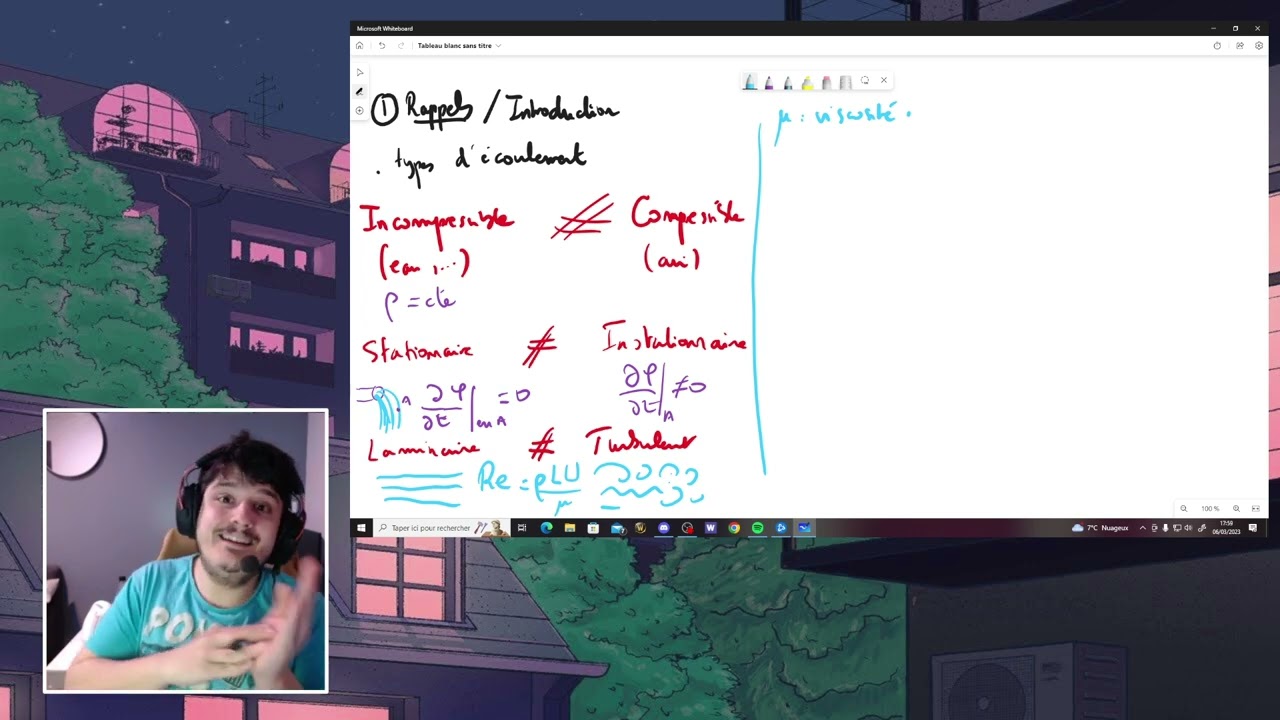 Microsoft Whiteboard
Tableau blanc sans titre
① Rappels / Introduction
. types d'écoulement
Incompressible ≠ Compressible
(eau, ...) (air)
ρ = cte
Stationnaire ≠ Instationnaire
A ∂φ/∂t | en A = 0 ∂φ/∂t | A ≠ 0
Laminaire ≠ Turbulent
Re = ρLU/μ
μ : viscosité.
100 %
Taper ici pour rechercher
7°C Nuageux
17:59
06/03/2023